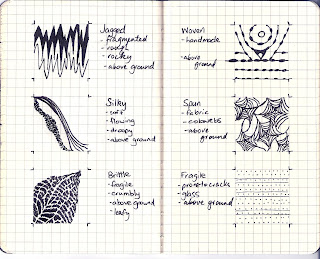 Jagged
- fragmented
- rough
- rocky
- above ground
Silky
- soft
- flowing
- droopy
- above ground
Brittle
- fragile
- crumbly
- above ground
- leafy
Woven
- handmade
- above
ground
Spun
- fabric
- cobwebs
- above
ground
Fragile
- prone to cracks
- glass
- above ground